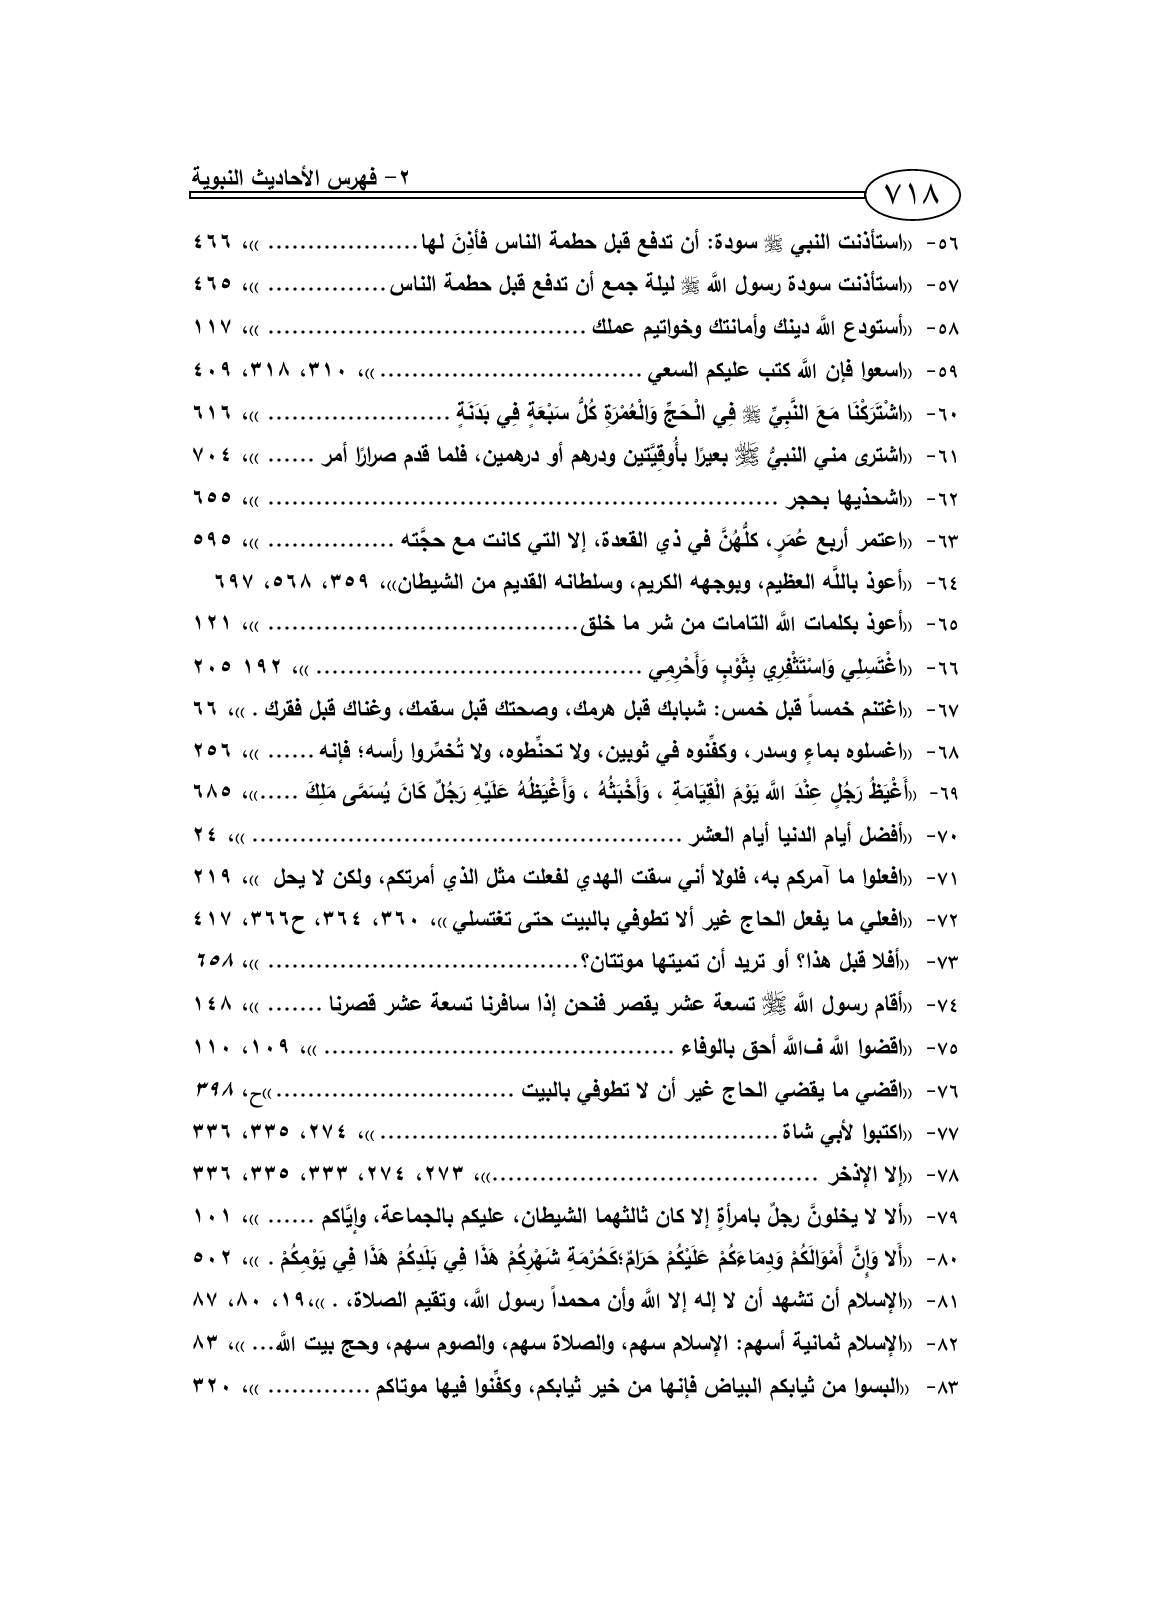 ٢- فهرس الأحاديث النبوية
٧١٨
٥٦- ((استأذنت النبي ﷺ سودة: أن تدفع قبل حطمة الناس فأذِنَ لها................... ))، ٤٦٦
٥٧- ((استأذنت سودة رسول الله ﷺ ليلة جمع أن تدفع قبل حطمة الناس............... ))، ٤٦٥
٥٨- ((أستودع الله دينك وأمانتك وخواتيم عملك ........................................ ))، ١١٧
٥٩- ((اسعوا فإن الله كتب عليكم السعي .................................))، ٣١٠، ٣١٨، ٤٠٩
٦٠- ((اشْتَرَكْنَا مَعَ النَّبِيِّ ﷺ فِي الْحَجِّ وَالْعُمْرَةِ كُلُّ سَبْعَةٍ فِي بَدَنَةٍ ....................... ))، ٦١٦
٦١- ((اشترى مني النبيُّ ﷺ بعيرًا بأُوقِيَّتين ودرهم أو درهمين، فلما قدم صرارًا أمر ...... ))، ٧٠٤
٦٢- ((اشحذيها بحجر ................................................................ ))، ٦٥٥
٦٣- ((اعتمر أربع عُمَرٍ، كلُّهُنَّ في ذي القعدة، إلا التي كانت مع حجَّته ................ ))، ٥٩٥
٦٤- ((أعوذ باللَّه العظيم، وبوجهه الكريم، وسلطانه القديم من الشيطان))، ٣٥٩، ٥٦٨، ٦٩٧
٦٥- ((أعوذ بكلمات الله التامات من شر ما خلق....................................... ))، ١٢١
٦٦- ((اغْتَسِلِي وَاسْتَثْفِرِي بِثَوْبٍ وَأَحْرِمِي ......................................... ))، ١٩٢ ٢٠٥
٦٧- ((اغتنم خمساً قبل خمس: شبابك قبل هرمك، وصحتك قبل سقمك، وغناك قبل فقرك . ))، ٦٦
٦٨- ((اغسلوه بماءٍ وسدر، وكفِّنوه في ثوبين، ولا تحنِّطوه، ولا تُخمِّروا رأسه؛ فإنه ...... ))، ٢٥٦
٦٩- ((أَغْيَظُ رَجُلٍ عِنْدَ الله يَوْمَ الْقِيَامَةِ ، وَأَخْبَثُهُ ، وَأَغْيَظُهُ عَلَيْهِ رَجُلٌ كَانَ يُسَمَّى مَلِكَ .....))، ٦٨٥
٧٠- ((أفضل أيام الدنيا أيام العشر ...................................................... ))، ٢٤
٧١- ((افعلوا ما آمركم به، فلولا أني سقت الهدي لفعلت مثل الذي أمرتكم، ولكن لا يحل ))، ٢١٩
٧٢- ((افعلي ما يفعل الحاج غير ألا تطوفي بالبيت حتى تغتسلي ))، ٣٦٠، ٣٦٤، ح٣٦٦، ٤١٧
٧٣- ((أفلا قبل هذا؟ أو تريد أن تميتها موتتان؟....................................... ))، ٦٥٨
٧٤- ((أقام رسول الله ﷺ تسعة عشر يقصر فنحن إذا سافرنا تسعة عشر قصرنا ....... ))، ١٤٨
٧٥- ((اقضوا الله فالله أحق بالوفاء ............................................ ))، ١٠٩، ١١٠
٧٦- ((اقضي ما يقضي الحاج غير أن لا تطوفي بالبيت ..............................))ح، ٣٩٨
٧٧- ((اكتبوا لأبي شاة .................................................))، ٢٧٤، ٣٣٥، ٣٣٦
٧٨- ((إلا الإذخر .........................................))، ٢٧٣، ٢٧٤، ٣٣٣، ٣٣٥، ٣٣٦
٧٩- ((ألا لا يخلونَّ رجلٌ بامرأةٍ إلا كان ثالثهما الشيطان، عليكم بالجماعة، وإيَّاكم ...... ))، ١٠١
٨٠- ((أَلا وَإِنَّ أَمْوَالَكُمْ وَدِمَاءَكُمْ عَلَيْكُمْ حَرَامٌ؛كَحُرْمَةِ شَهْرِكُمْ هَذَا فِي بَلَدِكُمْ هَذَا فِي يَوْمِكُمْ . ))، ٥٠٢
٨١- ((الإسلام أن تشهد أن لا إله إلا الله وأن محمداً رسول الله، وتقيم الصلاة، . ))،١٩، ٨٠، ٨٧
٨٢- ((الإسلام ثمانية أسهم: الإسلام سهم، والصلاة سهم، والصوم سهم، وحج بيت الله... ))، ٨٣
٨٣- ((البسوا من ثيابكم البياض فإنها من خير ثيابكم، وكفِّنوا فيها موتاكم ............. ))، ٣٢٠